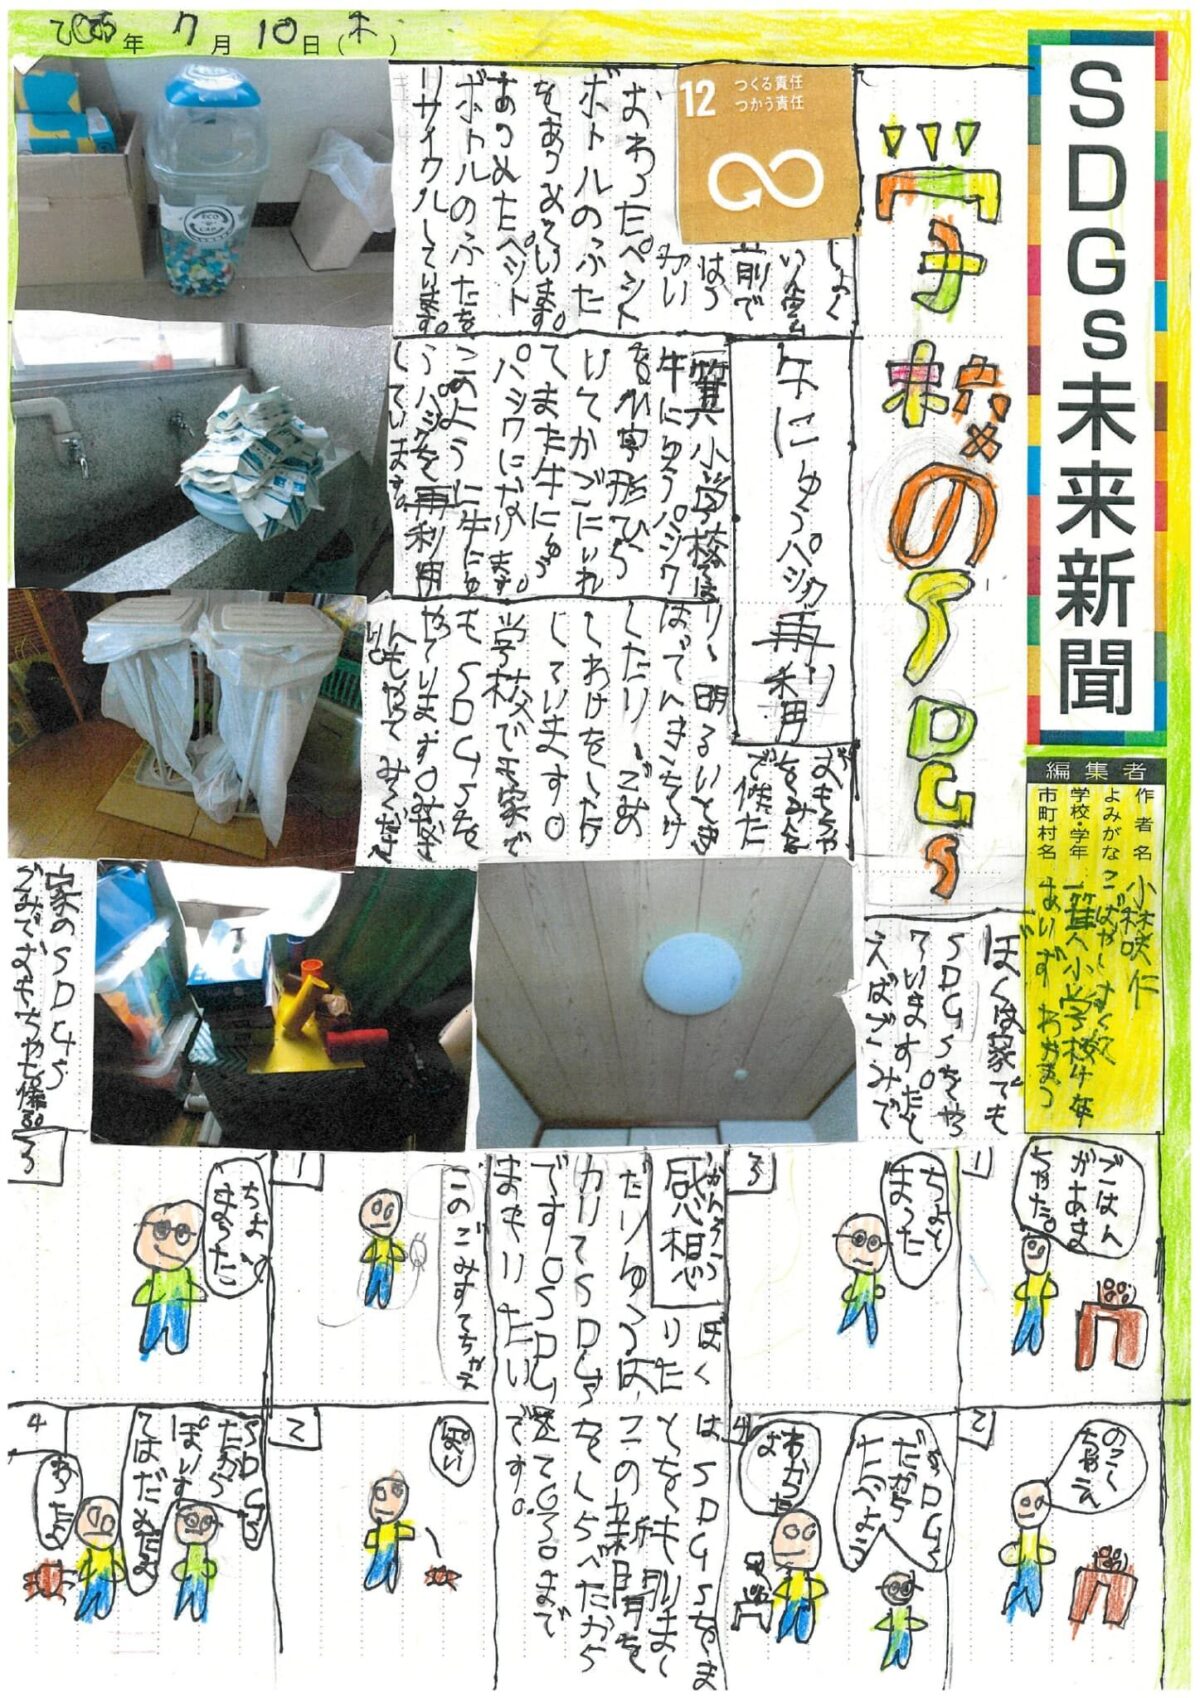 SDGs未来新聞
2025年7月10日(木)
編集者
作者名 小林咲仁
よみがな こばやし
学校・学年 一箕小学校4年
市町村名 あいづわかまつ
学校のSDGs
12 つくる責任
つかう責任
しょく
いん室
前で
はつ
かい
おわったペット
ボトルのふた
をあつめています。
あつめたペット
ボトルのふたを
リサイクルしています。
ECO
CAP
牛にゅうパック再利用
一箕小学校では
牛にゅうパック
ひら
いてかごにいれ
てまた牛にゅう
パックになります。
このように牛にゅ
うパックを再利用
しています。
ぼくは家でも
SDGsをやっ
ています。たと
えばごみで
おもちゃ
をみんな
で作った
り、明るいとき
はでんきをけ
したり、ごみ
しわけをしたり
しています。
学校でも家で
もSDGsを
やっています。みなさ
んもやってみてくださ
い。
家のSDGs
ごみでおもちゃを作る
感想
かんそう
ぼく
はSDGsをま
もりた
たりゆうは、
この新聞を
かいてSDGs
をしらべたから
です。SDGs
まもりたい
です。
1
ごはん
があま
っちゃた。
2
のこし
ちゃえ
3
ちょっと
まった
4
SDGs
だから
たべよう
わかった
よ
1
このごみすてちゃえ
2
ぽい
3
ちょい
まった
4
SDGs
だから
ぽいす
てはだめだよ
わかったよ